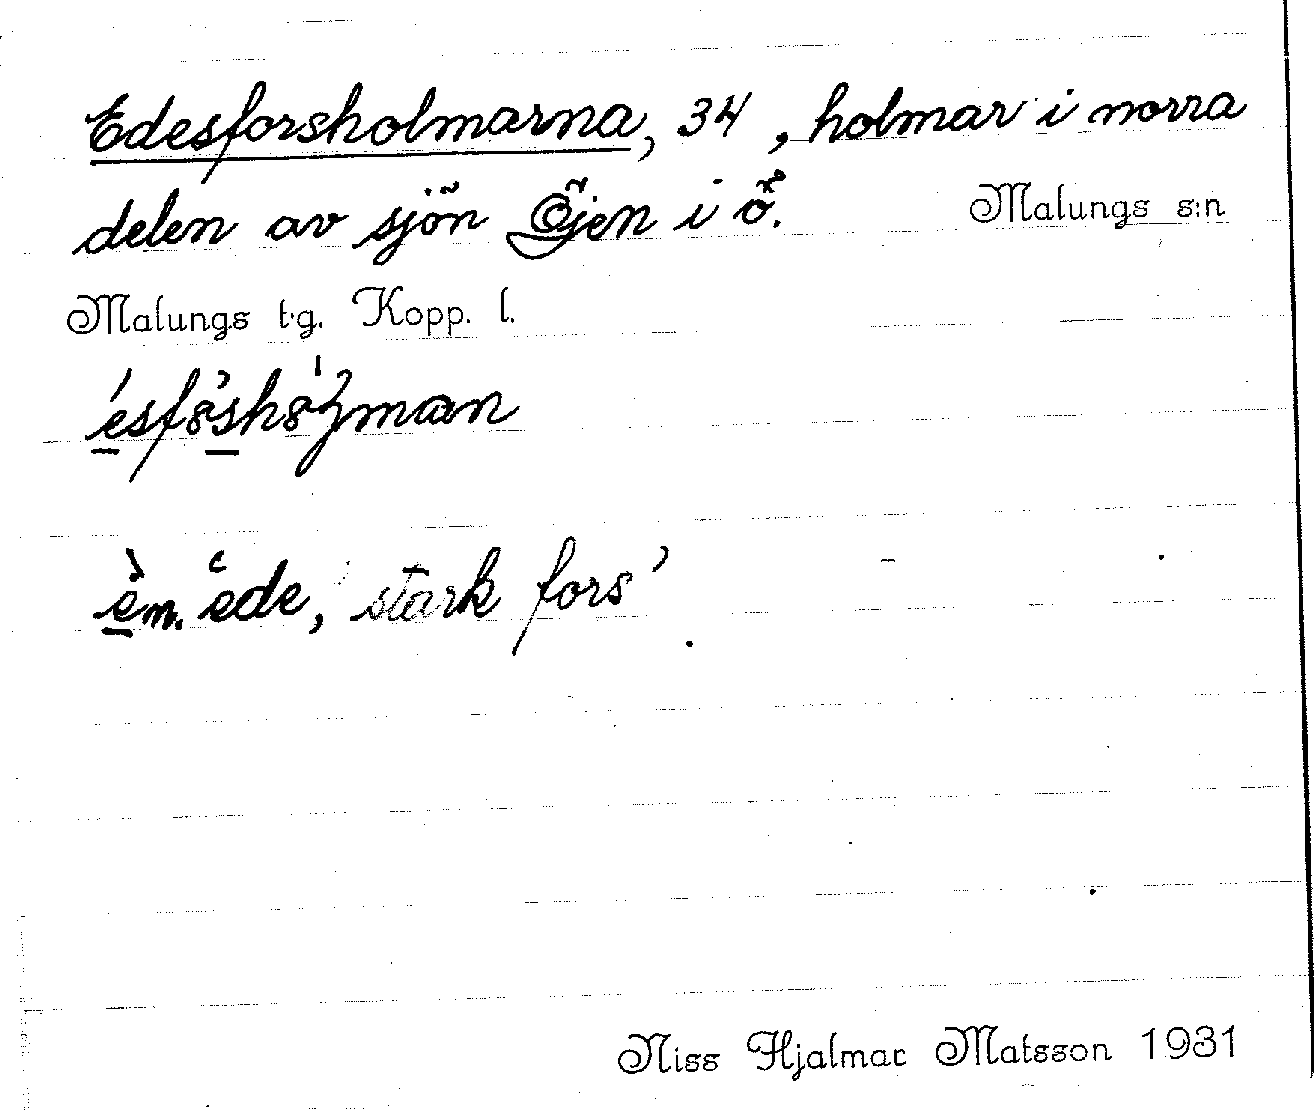 Edesforsholmarna, 34 , holmar i norra
delen av sjön Öjen i ö. Malungs s:n
Malungs t.g. Kopp. l.
ésfo̊shölman
èn. ede, 'stark fors'
Niss Hjalmar Matsson 1931